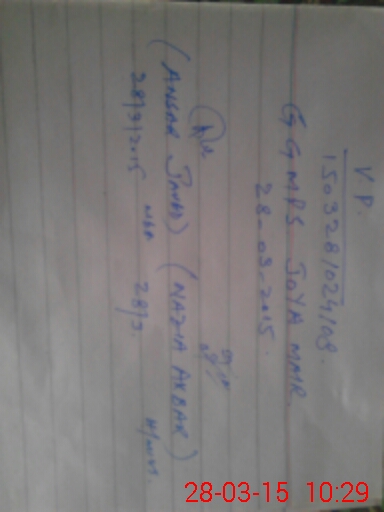 V.P.
150328102408.
GGMPS JOYA MMR.
28-03-2015.
(ANSAR Javed) (NAZIA AKBAR)
28/3/2015
28/3.
28-03-15 10:29